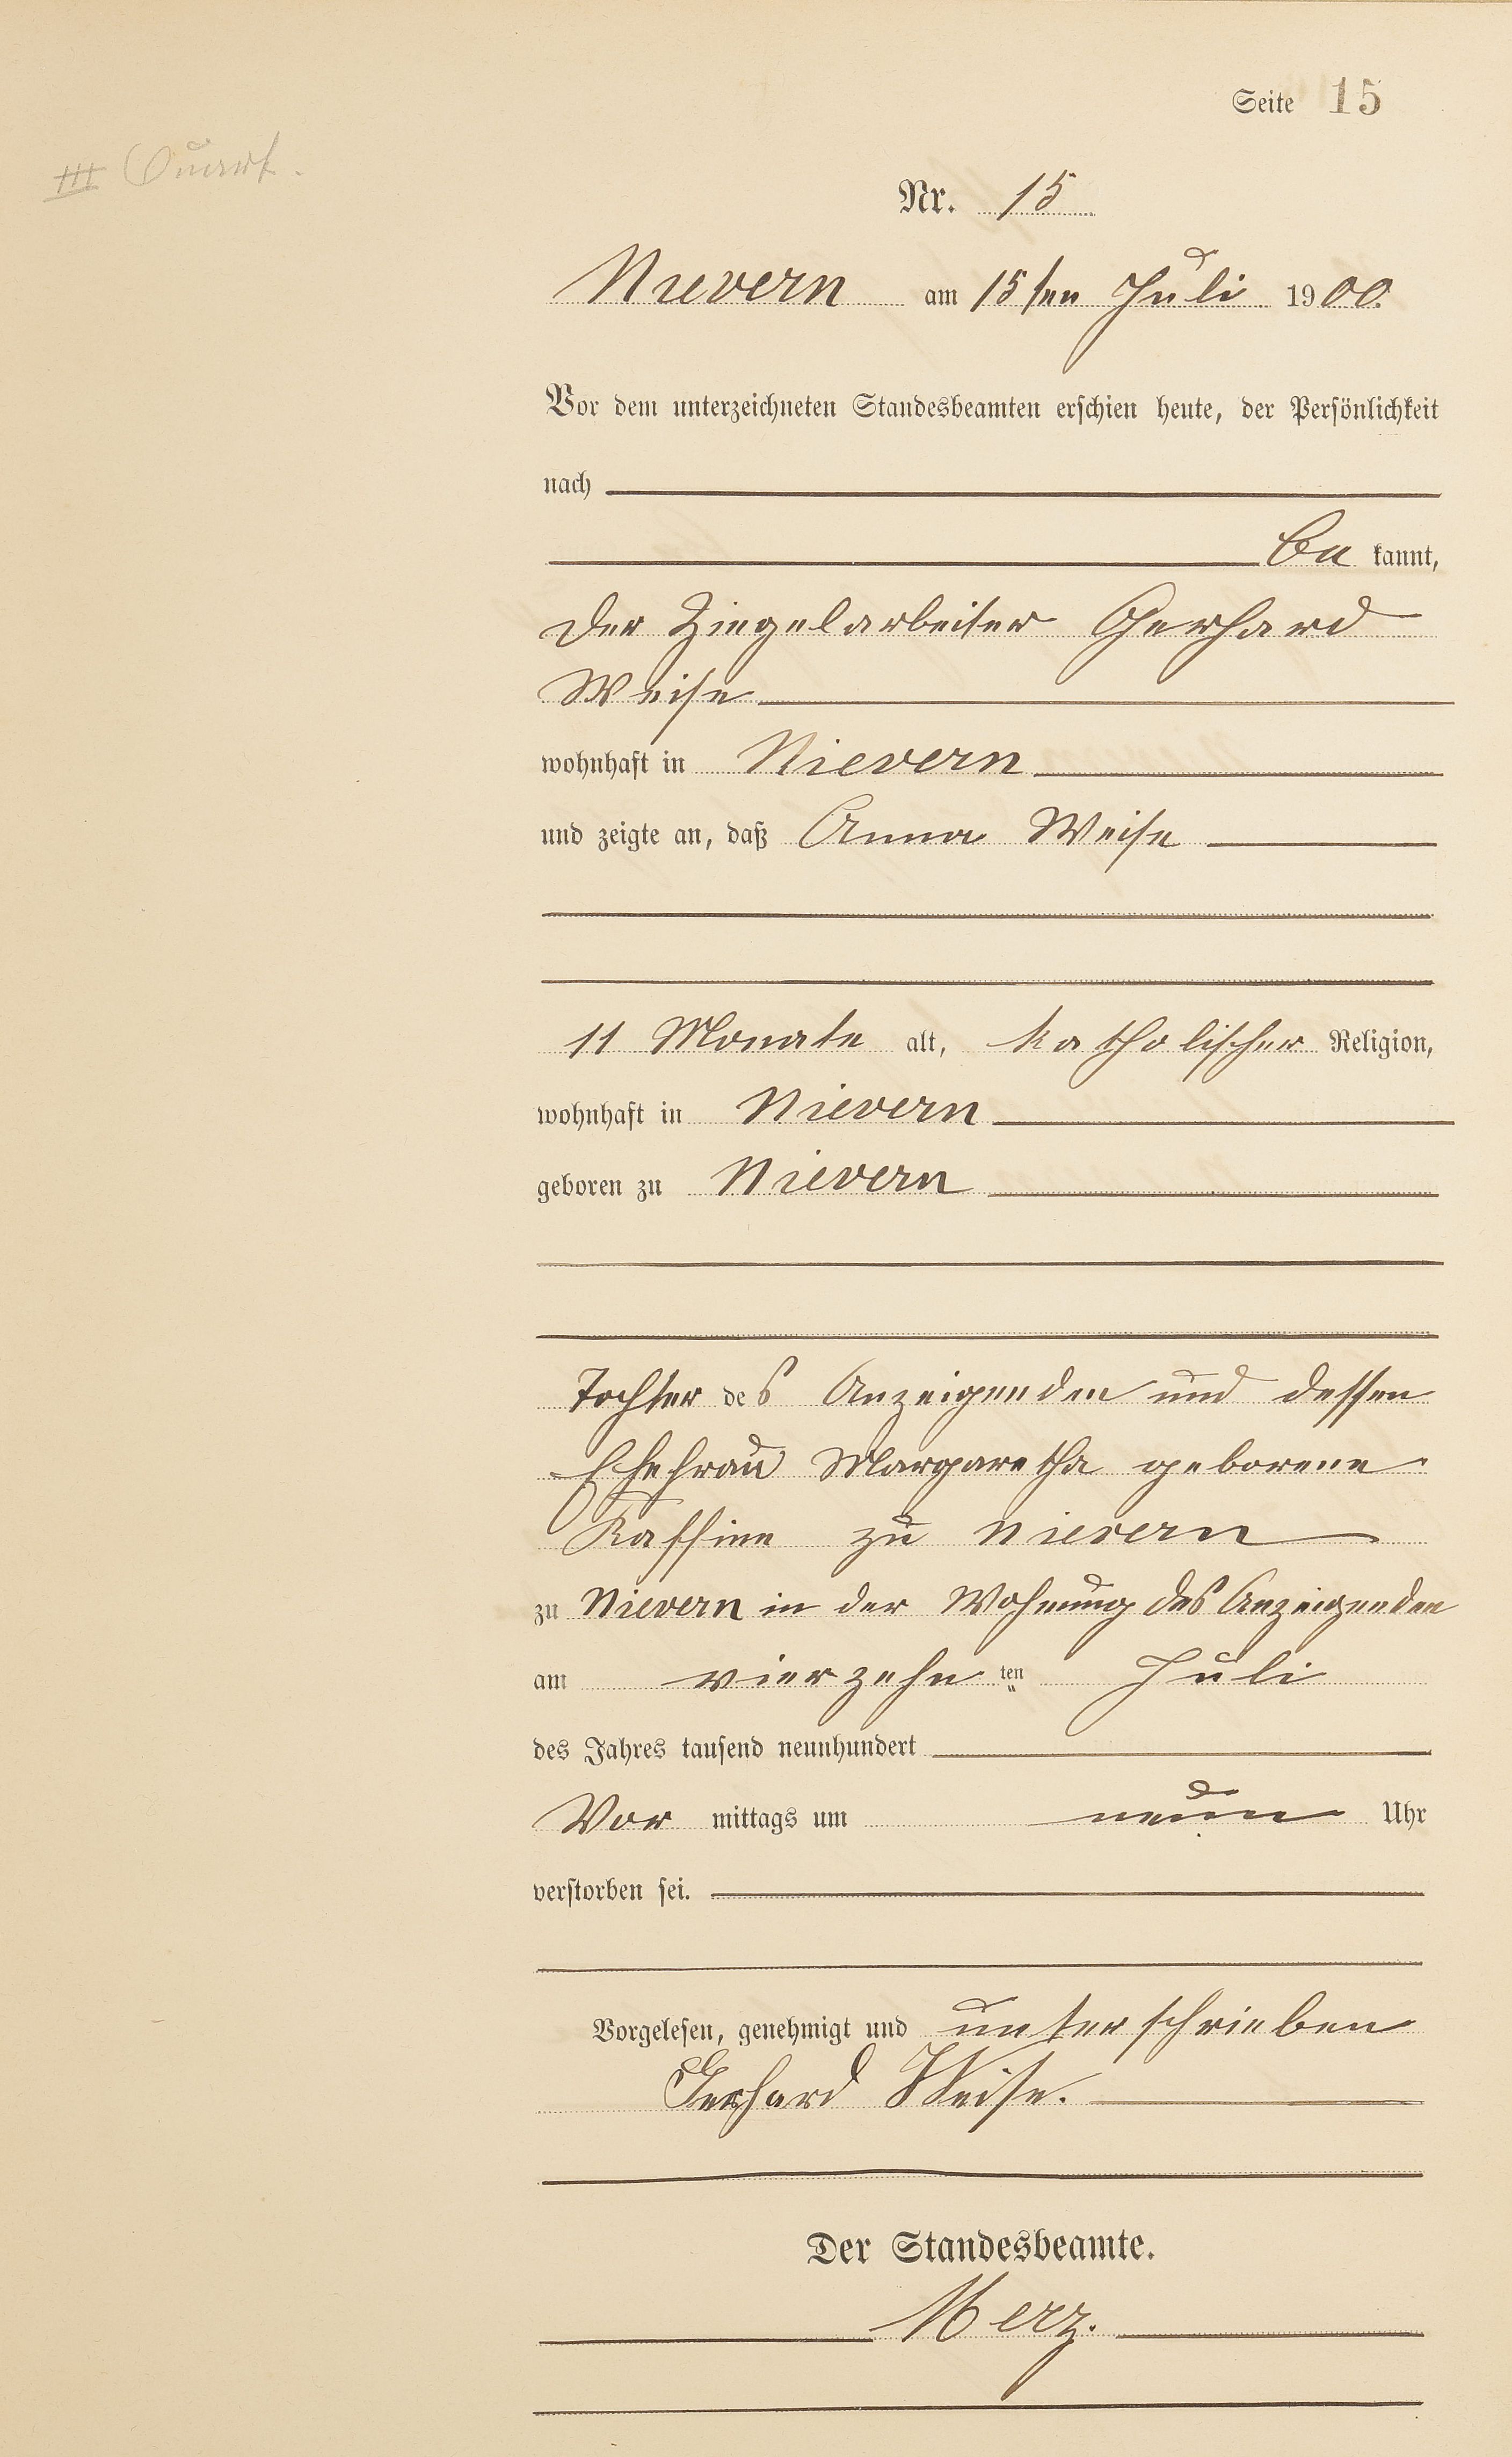 Seite 15
III Quart.
Nr. 15
Nievern am 15ten Juli 1900.
Vor dem unterzeichneten Standesbeamten erschien heute, der Persönlichkeit
nach
be kannt,
der Ziegelarbeiter Gerhard
Weise
wohnhaft in Nievern
und zeigte an, daß Anna Weise
11 Monate alt, katholischer Religion,
wohnhaft in Nievern
geboren zu Nievern
Tochter des Anzeigenden und dessen
Ehefrau Margaretha geborene
zu Nievern
zu Nievern in der Wohnung des Anzeigenden
am vierzehn ten Juli
des Jahres tausend neunhundert
Vor mittags um neun Uhr
verstorben sei.
Vorgelesen, genehmigt und unterschrieben
Gerhard Weise.
Der Standesbeamte.
Merz.